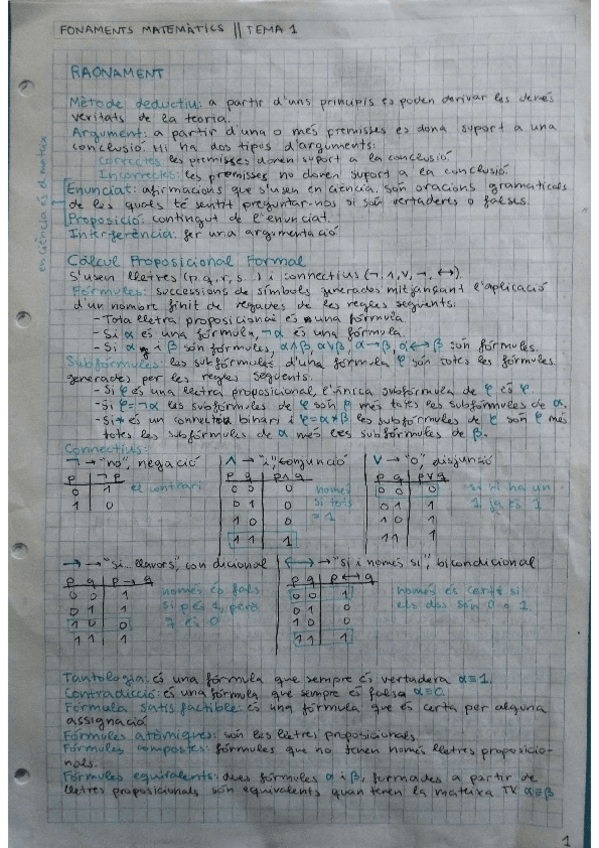 FONAMENTS MATEMÀTICS || TEMA 1
RAONAMENT
Mètode deductiu: a partir d'uns principis es poden derivar les demés
veritats de la teoria.
Argument: a partir d'una o més premisses es dona suport a una
conclusió. Hi ha dos tipus d'arguments:
Correctes: les premisses donen suport a la conclusió
Incorrectes: les premisses no donen suport a la conclusió.
en ciència és el mateix
Enunciat: afirmacions que s'usen en ciència. Són oracions gramaticals
de les quals té sentit preguntar-nos si són vertaderes o falses.
Proposició: contingut de l'enunciat.
Interferència: fer una argumentació
Càlcul Proposicional Formal
S'usen lletres (p, q, r, s...) i connectius (¬, ∧, ∨, →, ↔)
Fórmules: successions de símbols generades mitjançant l'aplicació
d'un nombre finit de vegades de les regles següents:
- Tota lletra proposicional és una fórmula
- Si α és una fórmula, ¬α és una fórmula
- Si α i β són fórmules, α∧β, α∨β, α→β, α↔β són fórmules.
Subfórmules: les subfórmules d'una fórmula φ són totes les fórmules
generades per les regles següents.
- Si φ és una lletra proposicional, l'única subfórmula de φ és φ.
- Si φ=¬α les subfórmules de φ són φ més totes les subfórmules de α.
- Si * és un connectiu binari i φ=α*β les subfórmules de φ són φ més
totes les subfórmules de α més les subfórmules de β.
Connectius:
¬ → "no", negació
p ¬p
0 1
1 0
el contrari
∧ → "i", conjunció
p q p∧q
0 0 0
0 1 0
1 0 0
1 1 1
només
si tots
= 1
∨ → "o", disjunció
p q p∨q
0 0 0
0 1 1
1 0 1
1 1 1
si hi ha un
1 ja és 1
→ → "si... llavors", condicional
p q p→q
0 0 1
0 1 1
1 0 0
1 1 1
només és fals
si p és 1, però
q és 0
↔ → "si i només si", bicondicional
p q p↔q
0 0 1
0 1 0
1 0 0
1 1 1
només és certa si
els dos són 0 o 1.
Tautologia: és una fórmula que sempre és vertadera α≡1.
Contradicció: és una fórmula que sempre és falsa α≡0.
Fórmula satisfactible: és una fórmula que és certa per alguna
assignació
Fórmules atòmiques: són les lletres proposicionals.
Fórmules compostes: fórmules que no tenen només lletres proposicio-
nals.
Fórmules equivalents: dues fórmules α i β, formades a partir de
lletres proposicionals són equivalents quan tenen la mateixa TV α≡β
1